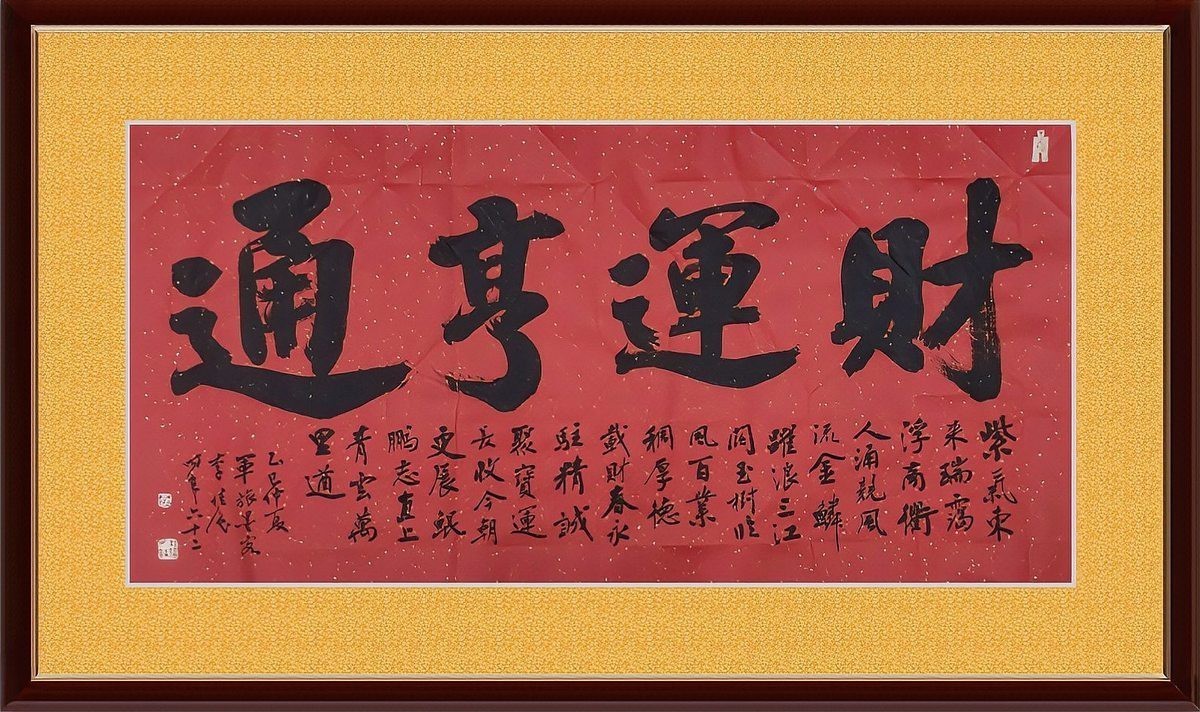 財運亨通
紫氣東
来瑞靄
浮商衢
人涌競風
流金鱗
躍浪三江
闊玉樹临
風百業
稠厚德
載財春永
駐精誠
聚寶運
長收今朝
更展鯤
鵬志直上
青雲萬
里遒
乙巳仲夏
軍旅墨客
李
时年六十二